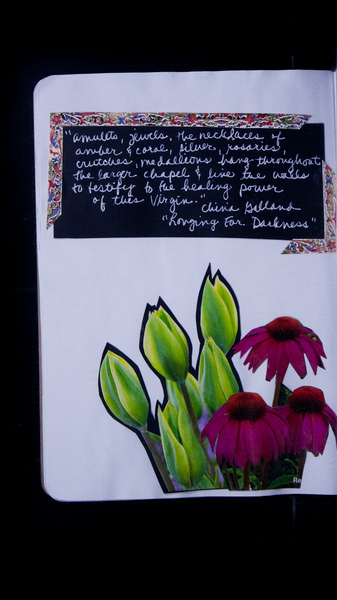 "amulets, jewels, the necklaces of
amber & coral, silver, rosaries,
crutches, medallions hang throughout
the larger chapel & line the walls
to testify to the healing power
of this Virgin."
China Galland
"Longing For Darkness"
Re